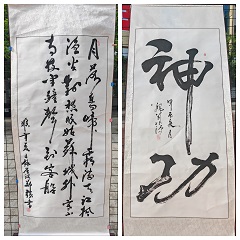 月落烏啼霜滿天江楓
漁火對愁眠姑蘇城外寒山
寺夜半鐘聲到客船
神功